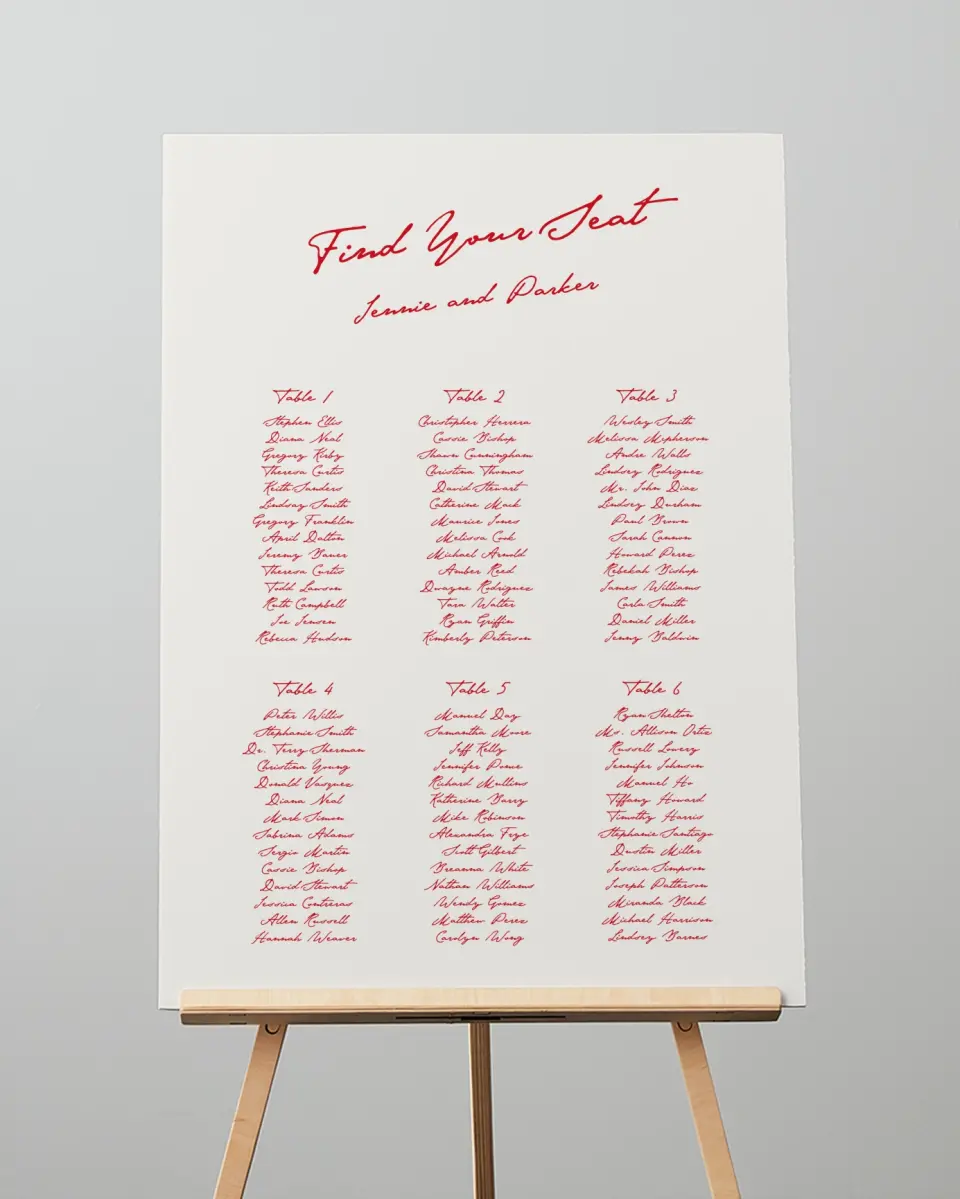 Find Your Seat
Jennie and Parker
Table 1
Stephen Ellis
Diana Neal
Gregory Kirby
Theresa Curtis
Keith Sanders
Lindsay Smith
Gregory Franklin
April Dalton
Jeremy Bauer
Theresa Curtis
Todd Lawson
Ruth Campbell
Joe Jensen
Rebecca Hudson
Table 2
Christopher Herrera
Cassie Bishop
Shawn Cunningham
Christina Thomas
David Stewart
Catherine Mack
Maurice Jones
Melissa Cook
Michael Arnold
Amber Reed
Dwayne Rodriguez
Tara Walter
Ryan Griffin
Kimberly Peterson
Table 3
Wesley Smith
Melissa Mcpherson
Andre Walls
Lindsey Rodriguez
Mr. John Diaz
Lindsey Durham
Paul Brown
Sarah Cannon
Howard Perez
Rebekah Bishop
James Williams
Carla Smith
Daniel Miller
Jenny Baldwin
Table 4
Peter Willis
Stephanie Smith
Dr. Terry Sherman
Christina Young
Donald Vasquez
Diana Neal
Mark Simon
Sabrina Adams
Sergio Martin
Cassie Bishop
David Stewart
Jessica Contreras
Allen Russell
Hannah Weaver
Table 5
Manuel Day
Samantha Moore
Jeff Kelly
Jennifer Ponce
Richard Mullins
Katherine Barry
Mike Robinson
Alexandra Frye
Scott Gilbert
Breanna White
Nathan Williams
Wendy Gomez
Matthew Perez
Carolyn Wong
Table 6
Ryan Shelton
Ms. Allison Ortiz
Russell Lowery
Jennifer Johnson
Manuel Ho
Tiffany Howard
Timothy Harris
Stephanie Santiago
Dustin Miller
Jessica Simpson
Joseph Patterson
Miranda Black
Michael Harrison
Lindsey Barnes